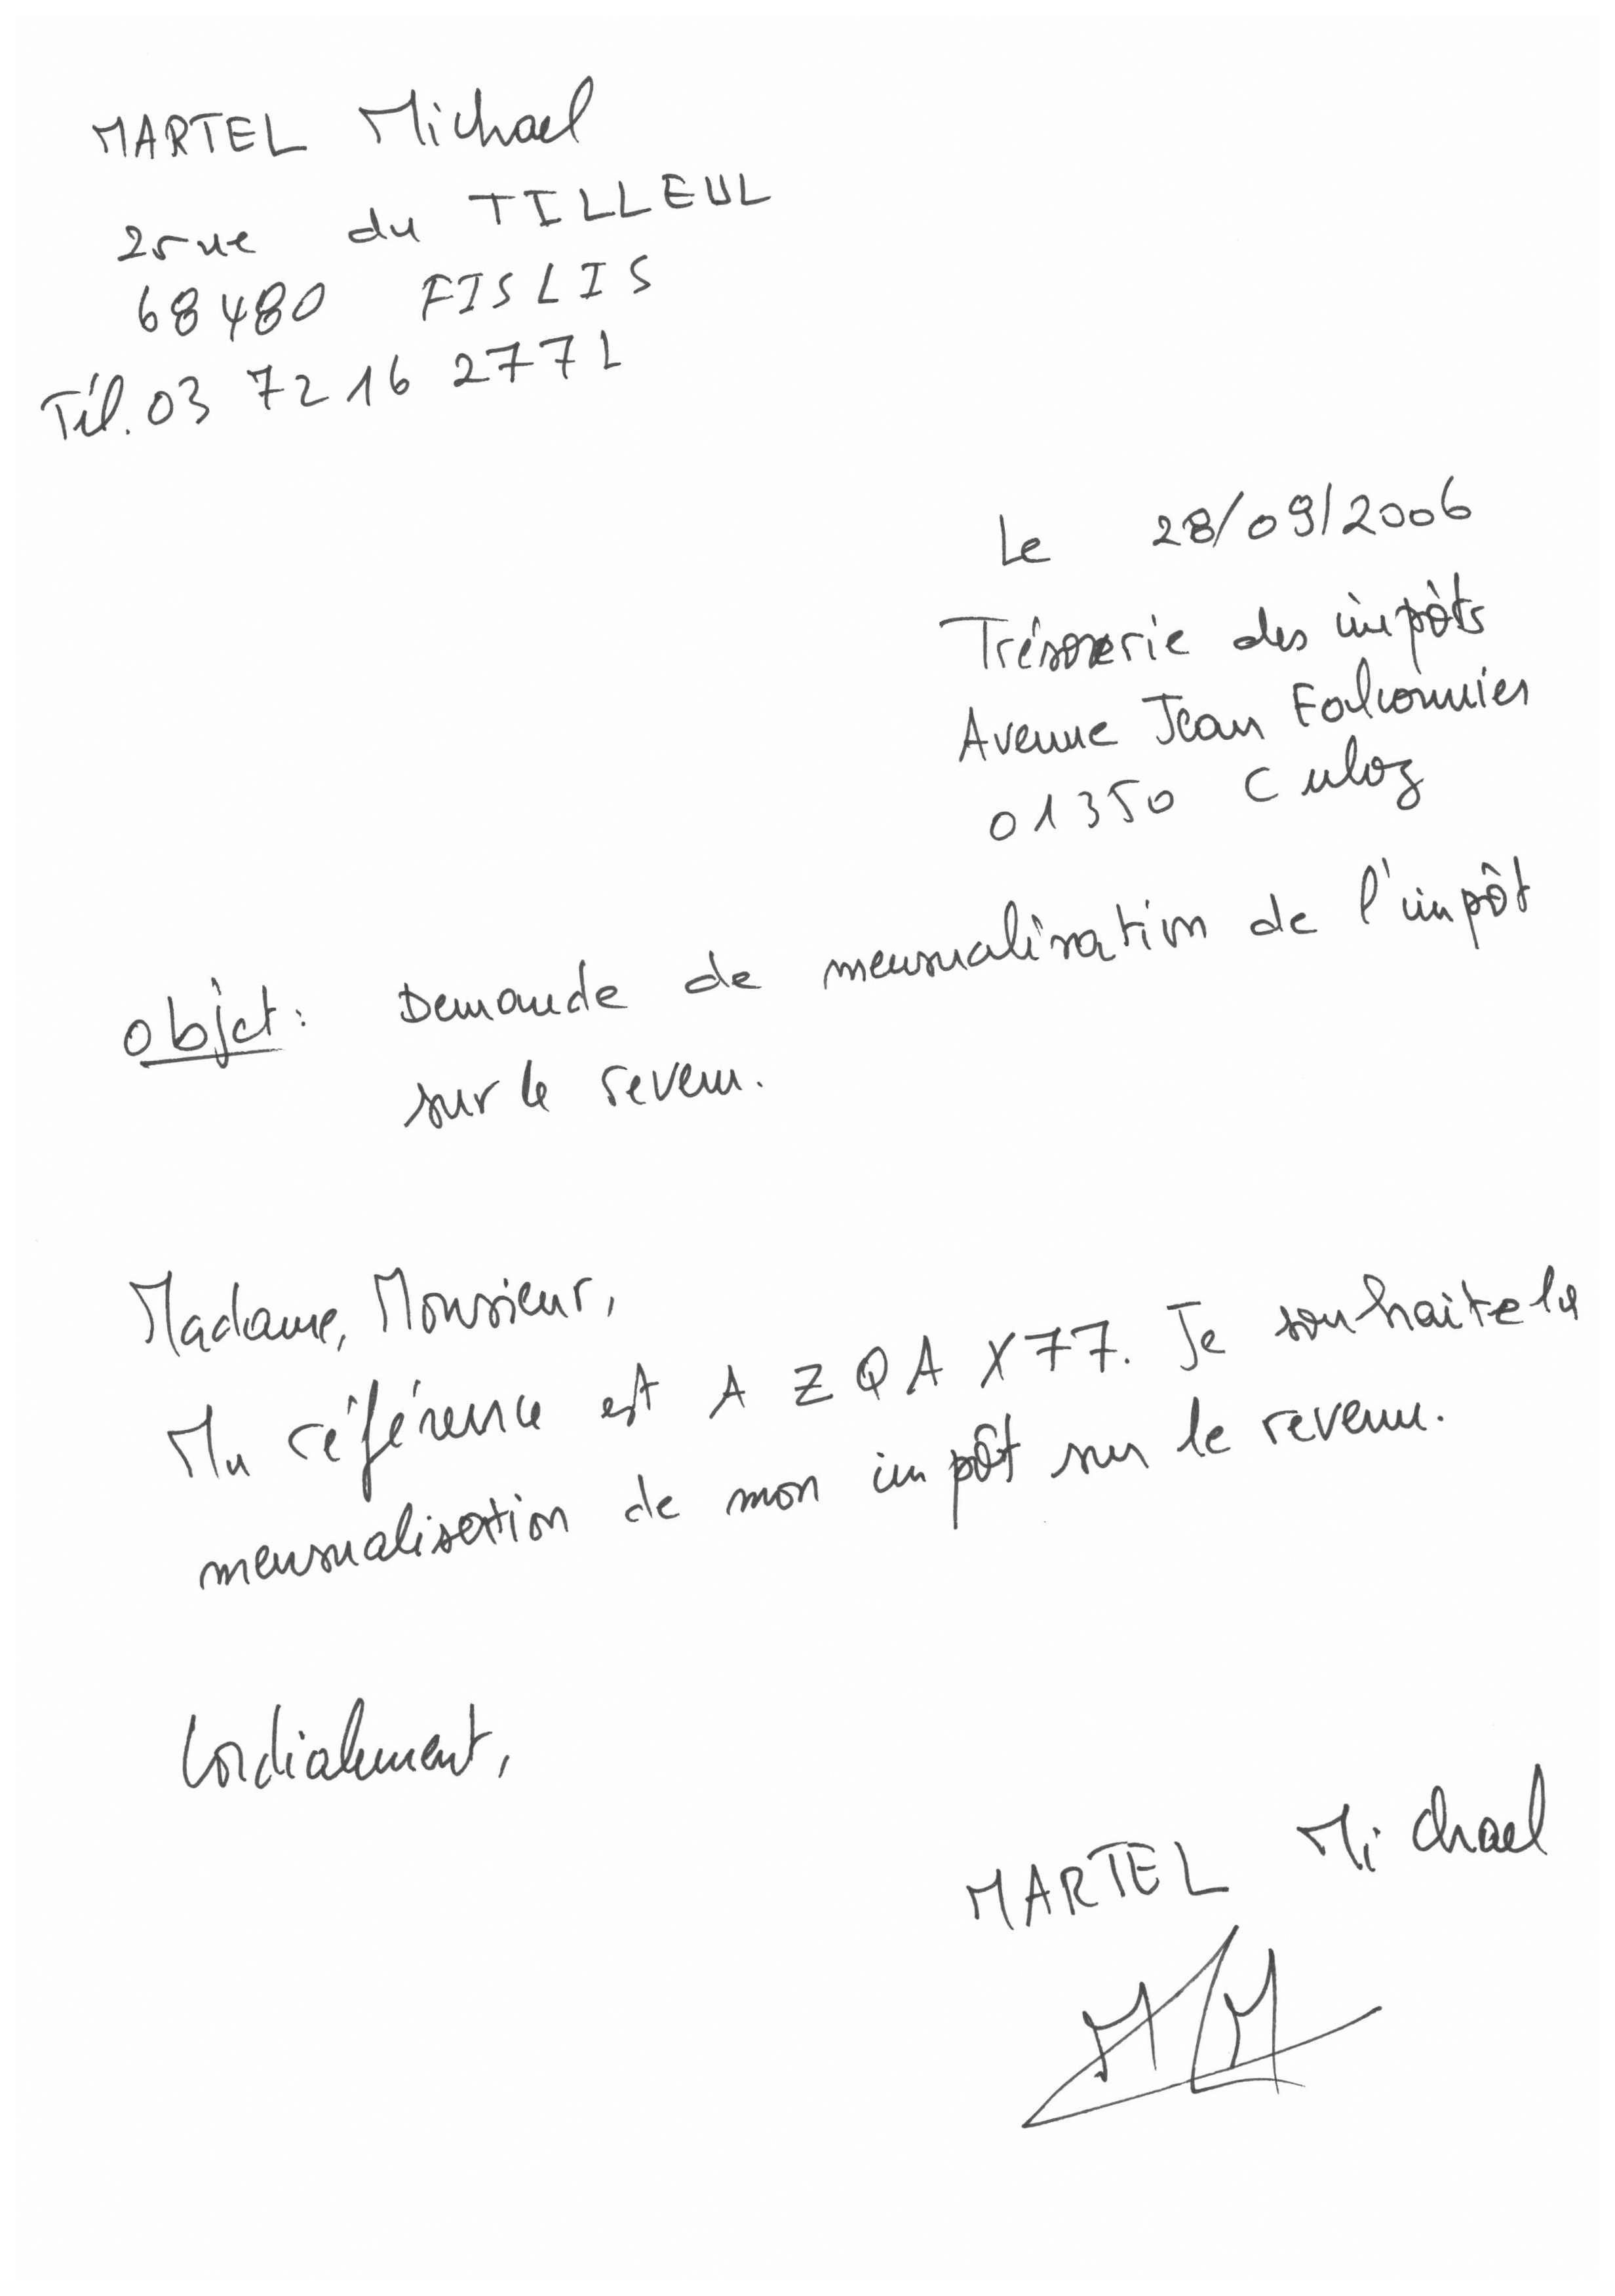 MARTEL Michael
2 rue du TILLEUL
68480 FISLIS
Tél. 03 72 16 27 71
Le 28/09/2006
Trésorerie des impôts
Avenue Jean Falconnier
01350 Culoz
objet : Demande de mensualisation de l'impôt
sur le revenu.
Madame, Monsieur,
Ma référence est AZQAX77. Je souhaite la
mensualisation de mon impôt sur le revenu.
Cordialement,
MARTEL Michael